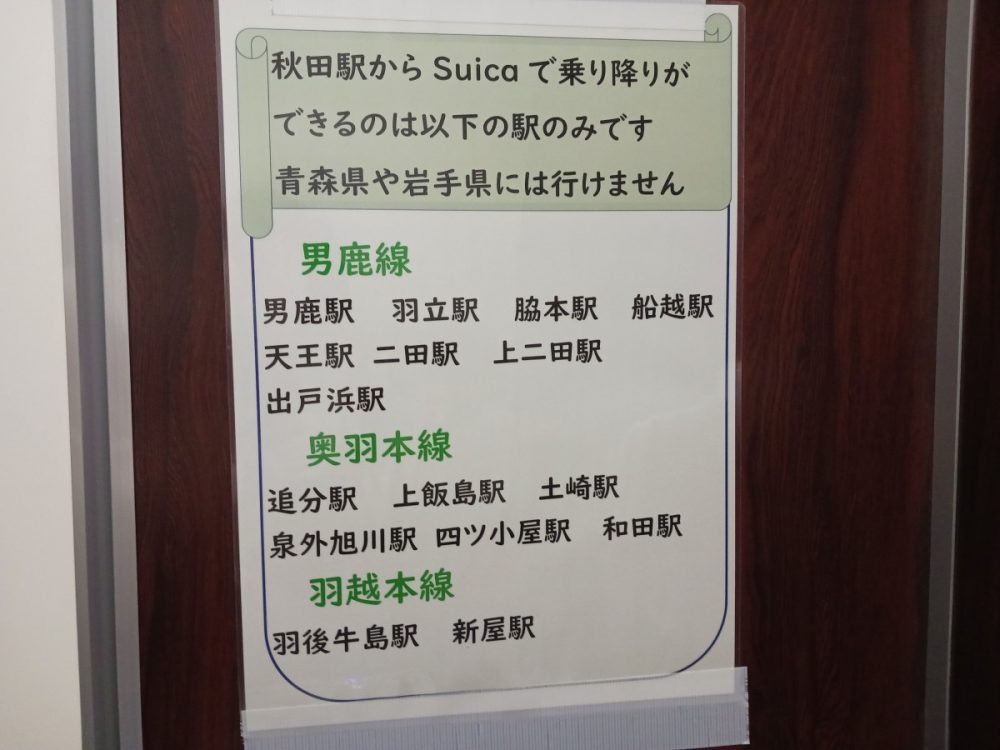 秋田駅から Suica で乗り降りが
できるのは以下の駅のみです
青森県や岩手県には行けません
男鹿線
男鹿駅 羽立駅 脇本駅 船越駅
天王駅 二田駅 上二田駅
出戸浜駅
奥羽本線
追分駅 上飯島駅 土崎駅
泉外旭川駅 四ツ小屋駅 和田駅
羽越本線
羽後牛島駅 新屋駅